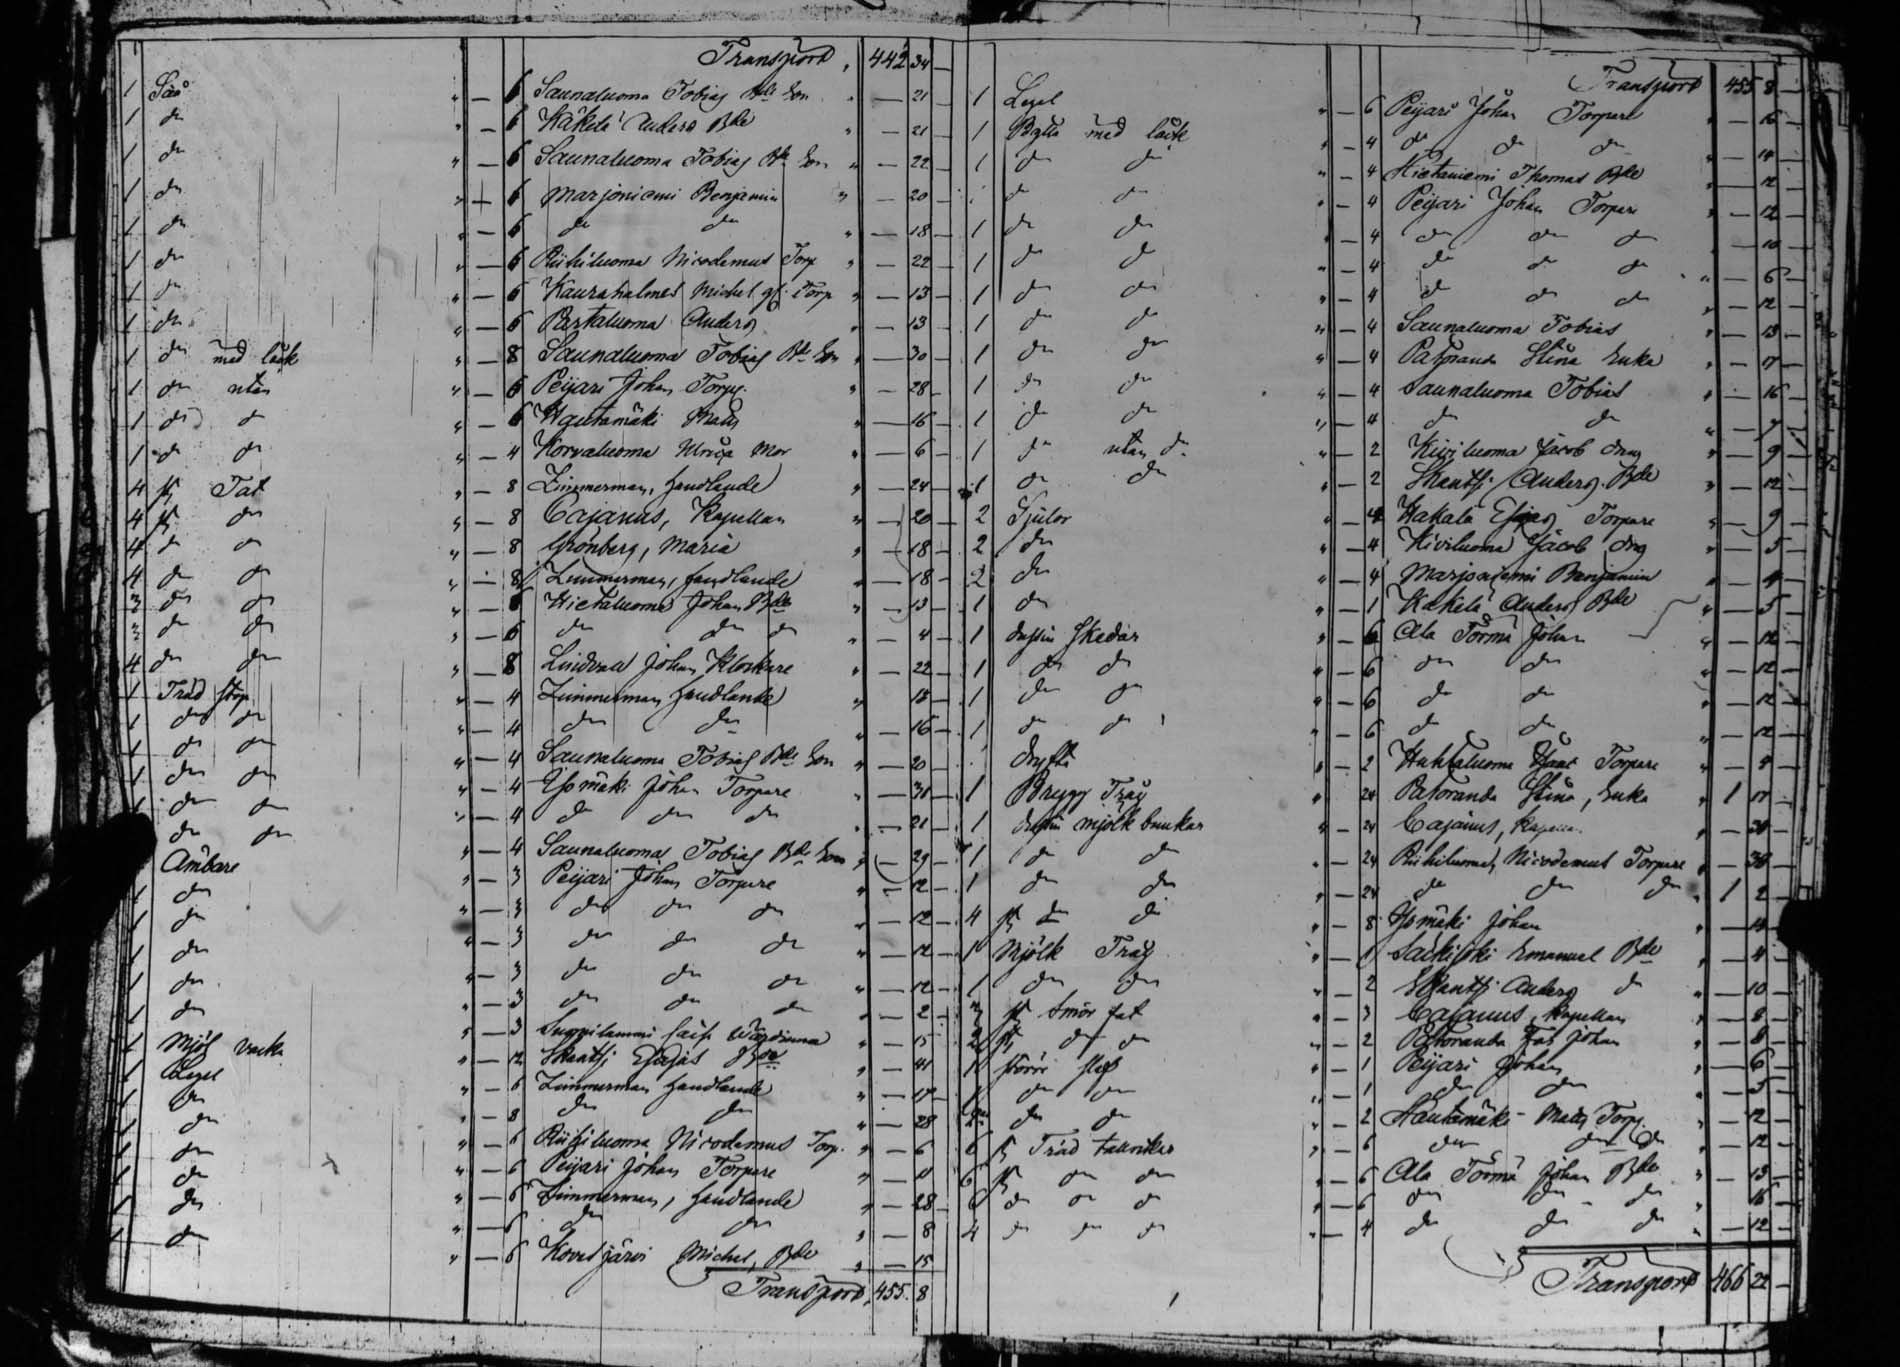 Transport 442 34
1 Såå " — 6 Saunaluoma Tobias Bde Son " — 21
1 do " — 6 Käkelä Anders Bde " — 21
1 do " — 6 Saunaluoma Tobias Bde Son " — 22
1 do " — 6 Marjoniemi Benjamin " — 20
1 do " — 6 do do " — 18
1 do " — 6 Riihiluoma Nicodemus Torp " — 22
1 do " — 6 Kaurahalmes Michel Torp " — 13
1 do " — 6 Partaluoma Anders " — 13
1 do med låck " — 8 Saunaluoma Tobias Bde Son " — 30
1 do utan " — 6 Peijari Johan Torp. " — 28
1 do do " — 6 Hautamäki Mats " — 16
1 do do " — 4 Korvaluoma Mor " — 6
4 st Fat " — 8 Zimmerman, Handlande " — 24
4 st do " — 8 Cajanus, Kapellan " — 20
4 do do " — 8 Grönberg, Maria " — 18
4 do do " — 8 Zimmerman, Handlande " — 18
3 do do " — 6 Hietaluoma Johan Bde " — 13
3 do do " — 6 do do do " — 4
4 do do " — 8 Lindvall Johan Klockare " — 22
1 Träd stop " — 4 Zimmerman Handlande " — 13
1 do do " — 4 do do " — 16
1 do do " — 4 Saunaluoma Tobias Bde Son " — 20
1 do do " — 4 Ylömäki Johan Torpare " — 31
1 do do " — 4 do do do " — 21
1 do do " — 4 Saunaluoma Tobias Bde Son " — 29
1 Ämbare " — 3 Peijari Johan Torpare " — 12
1 do " — 3 do do do " — 12
1 do " — 3 do do do " — 12
1 do " — 3 do do do " — 12
1 do " — 3 do do do " — 2
1 do " — 3 Luppilammi Wärdinna " — 15
1 Mjöl " — 12 Skantsi Elias Bde " — 41
1 Legel " — 6 Zimmerman Handlande " — 17
1 do " — 8 do do " — 28
1 do " — 6 Riihiluoma Nicodemus Torp. " — 6
1 do " — 6 Peijari Johan Torpare " — 11
1 do " — 6 Zimmerman, Handlande " — 28
1 do " — 6 do do " — 8
1 do " — 6 Kovesjärvi Michel, Bde " — 15
Transport 455 8
Transport 455 8
1 Legel " — 6 Peijari Johan Torpare " — 16
1 Bytta med låck " — 4 do do do " — 14
1 do do " — 4 Hietaniemi Thomas Bde " — 12
1 do do " — 4 Peijari Johan Torpare " — 12
1 do do " — 4 do do do " — 10
1 do do " — 4 do do do " — 6
1 do do " — 4 do do do " — 12
1 do do " — 4 Saunaluoma Tobias " — 13
1 do do " — 4 Patoranda Stina Enka " — 17
1 do do " — 4 Saunaluoma Tobias " — 16
1 do do " — 4 do do " — 7
1 do utan do " — 2 Kiviluoma Jacob dräng " — 9
1 do do " — 2 Skantsi Anders Bde " — 12
2 Tjulor " — 4 Hakala Elias Torpare " — 9
2 do " — 4 Kiviluoma Jacob drg " — 5
2 do " — 4 Marjoniemi Benjamin " — 4
1 do " — 1 Käkelä Anders Bde " — 5
1 dussin Skedar " — 6 Ala Törmä Johan " — 12
1 do do " — 6 do do " — 12
1 do do " — 6 do do " — 12
1 do do " — 6 do do " — 12
dryfta " — 2 Huhtaluoma Isac Torpare " — 4
1 Brygg Tråg " 24 Patoranda Stina, Enka " 1 17
1 dussin mjölk bunkar " — 24 Cajanus, Kapellan " — 30
1 do do " — 24 Riihiluoma Nicodemus Torpare " — 30
1 do do " — 24 do do do " 1 2
4 st do do " — 8 Ylömäki Johan " — 14
1 Mjölk Tråg " — 1 Säikiski Emanuel Bde " — 4
1 do do " — 2 Skantsi Anders do " — 10
3 st Smör fat " — 3 Cajanus, Kapellan " — 8
2 st do do " — 2 Patoranda Johan " — 8
1 större slef " — 1 Peijari Johan " — 6
1 do do " — 1 do do " — 5
2 do do " — 2 Hautamäki Mats Torp. " — 12
6 st Träd tallrikar " — 6 do do do " — 12
6 st do do " — 6 Ala Törmä Johan Bde " — 13
6 do do do " — 6 do do do " — 16
4 do do do " — 4 do do do " — 12
Transport 466 22